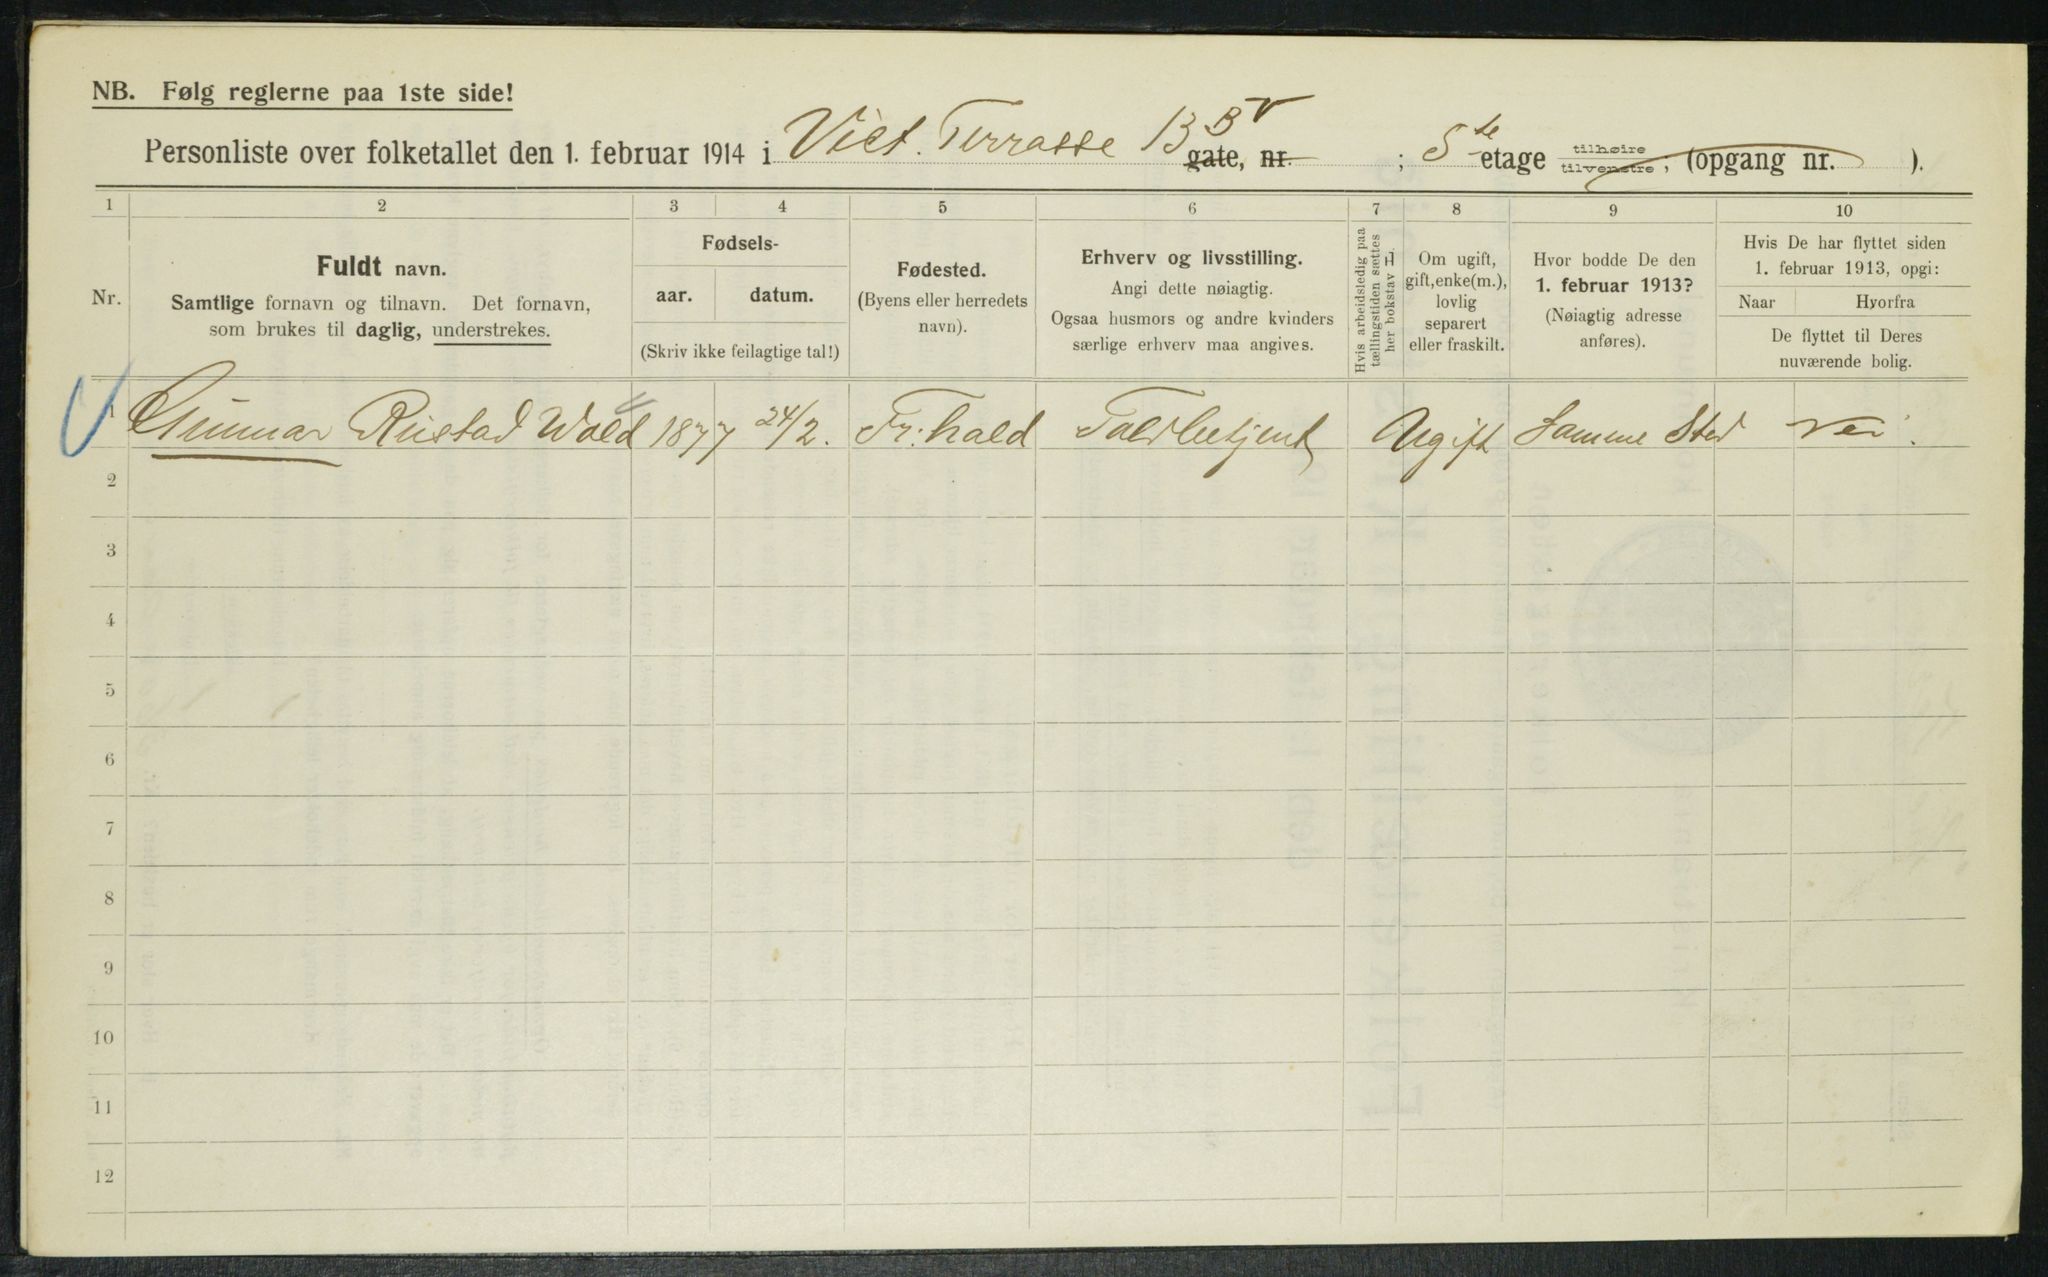 NB. Følg reglerne paa 1ste side!
Personliste over folketallet den 1. februar 1914 i Vict. Terrasse 13 B V gate, nr. ; 5te etage tilhøire tilvenstre; (opgang nr. ).
1 2 3 4 5 6 7 8 9 10
Nr.
Fuldt navn.
Samtlige fornavn og tilnavn. Det fornavn,
som brukes til daglig, understrekes.
Fødsels-
aar. datum.
(Skriv ikke feilagtige tal!)
Fødested.
(Byens eller herredets
navn).
Erhverv og livsstilling.
Angi dette nøiagtig.
Ogsaa husmors og andre kvinders
særlige erhverv maa angives.
Hvis arbeidsledig paa
tællingstiden sættes
her bokstav L.
Om ugift,
gift, enke(m.),
lovlig
separert
eller fraskilt.
Hvor bodde De den
1. februar 1913?
(Nøiagtig adresse
anføres).
Hvis De har flyttet siden
1. februar 1913, opgi:
Naar Hvorfra
De flyttet til Deres
nuværende bolig.
1 Gunnar Rustad Wold 1877 24/2. Fr:hald Toldbetjent Ugift Samme Sted Nei.
2
3
4
5
6
7
8
9
10
11
12